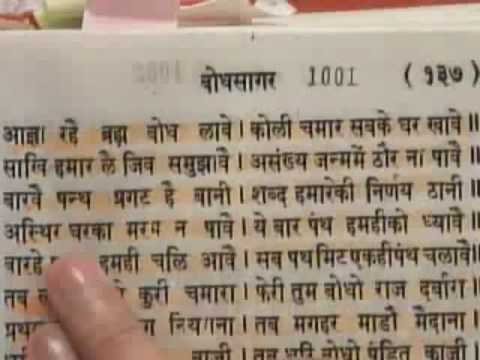 बोधसागर 1001 (१३७)
आज्ञा रहै ब्रह्म बोध लावै। कोली चमार सबके घर खावै॥
साखि हमार लै जिव समुझावै। असंख्य जन्ममें ठौर ना पावै॥
बारवै पन्थ प्रगट है बानी। शब्द हमारेकी निर्णय ठानी॥
अस्थिर घरका मरम न पावै। ये बार पंथ हमहीको ध्यावै॥
बारहे हमही चलि आवै। सब पथमिट एकहीपंथ चलावै॥
तब कुरी चमारा। फेरी तुम बोधो राज दर्बारा।
तब मगहर माडौ मैदाना